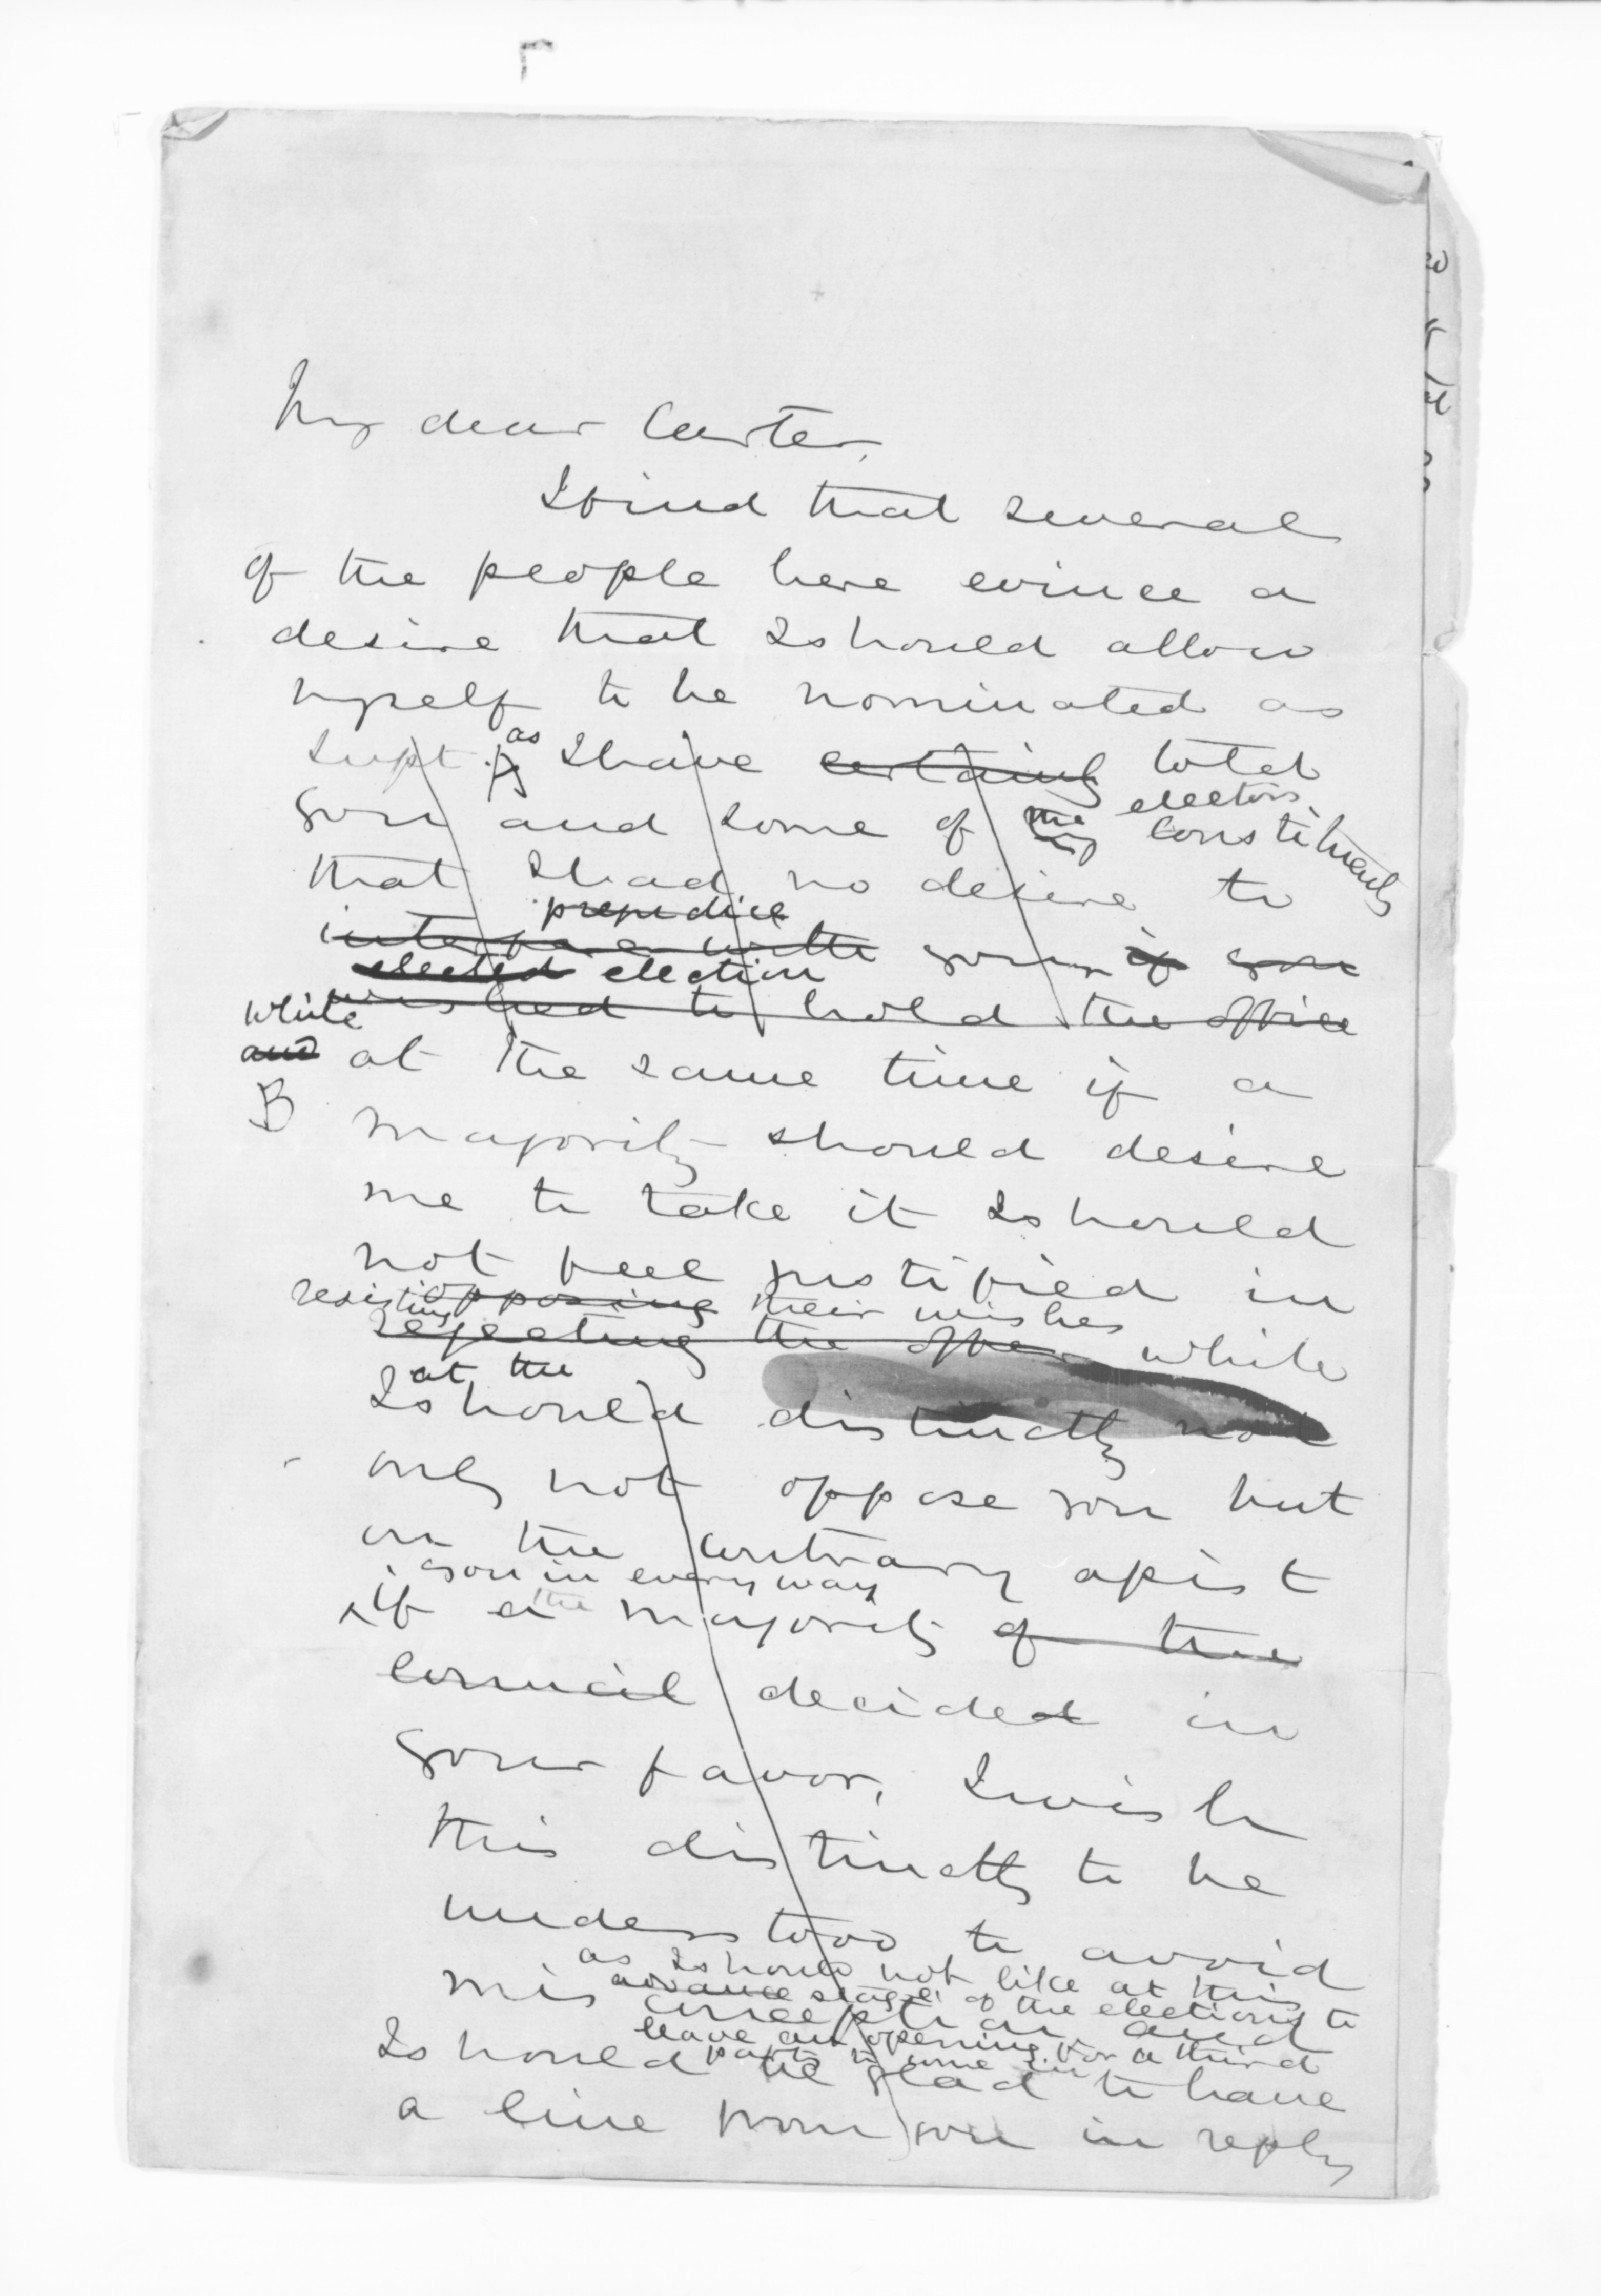 My dear Carter,
I find that several
of the people here evince a
desire that I should allow
myself to be nominated as
Supt. as I have certainly told
electors
you and some of the my constituents
that I had no desire to
prejudice
interfere with your if you
elected election
wished to hold the office
while
and at the same time if a
B majority should desire
me to take it I should
not feel justified in
resisting opposing their wishes
rejecting the offer while
at the
I should distinctly not
only not oppose you but
on the contrary assist
you in every way
if a the majority of the
Council decided in
your favor, I wish
this distinctly to be
understood to avoid
as I should not like at this
advance stage of the elections to
misconception and
leave an opening for a third
party to come in
I should be glad to have
a line from you in reply